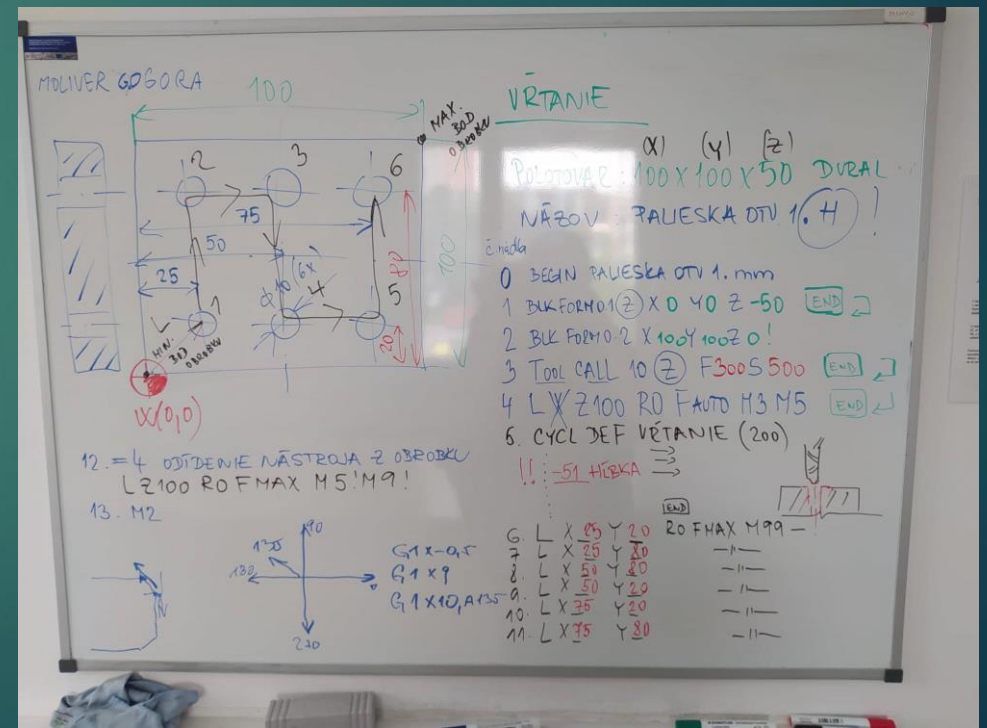 MOLIVER GOGORA
100
MAX.
BOD
OBROBKU
2
3
6
75
50
(6x
25
80
100
4
5
1
20
MIN.
BOD
OBROBKU
W(0,0)
12. = 4 ODÍDENIE NÁSTROJA Z OBROBKU
L Z100 R0 F MAX M5! M9!
13. M2
90
135
180
0
270
G1 X-0,5
G1 X9
G1 X10, A135
VŔTANIE
(X) (Y) (Z)
POLOTOVAR : 100 X 100 X 50 DURAL
NÁZOV : PALIESKA OTV 1. H !
0 BEGIN PALIESKA OTV 1. mm
1 BLK FORM 0.1 Z X 0 Y 0 Z -50 END
2 BLK FORM 0.2 X 100 Y 100 Z 0!
3 TOOL CALL 10 Z F300 S 500 END
4 L Z100 R0 F AUTO M3 M5 END
5. CYCL DEF VŔTANIE (200)
!! -51 HĹBKA
END
6. L X 25 Y 20 R0 FMAX M99 —
7 L X 25 Y 80 —"—
8. L X 50 Y 80 —"—
9. L X 50 Y 20 —"—
10. L X 75 Y 20 —"—
11. L X 75 Y 80 —"—